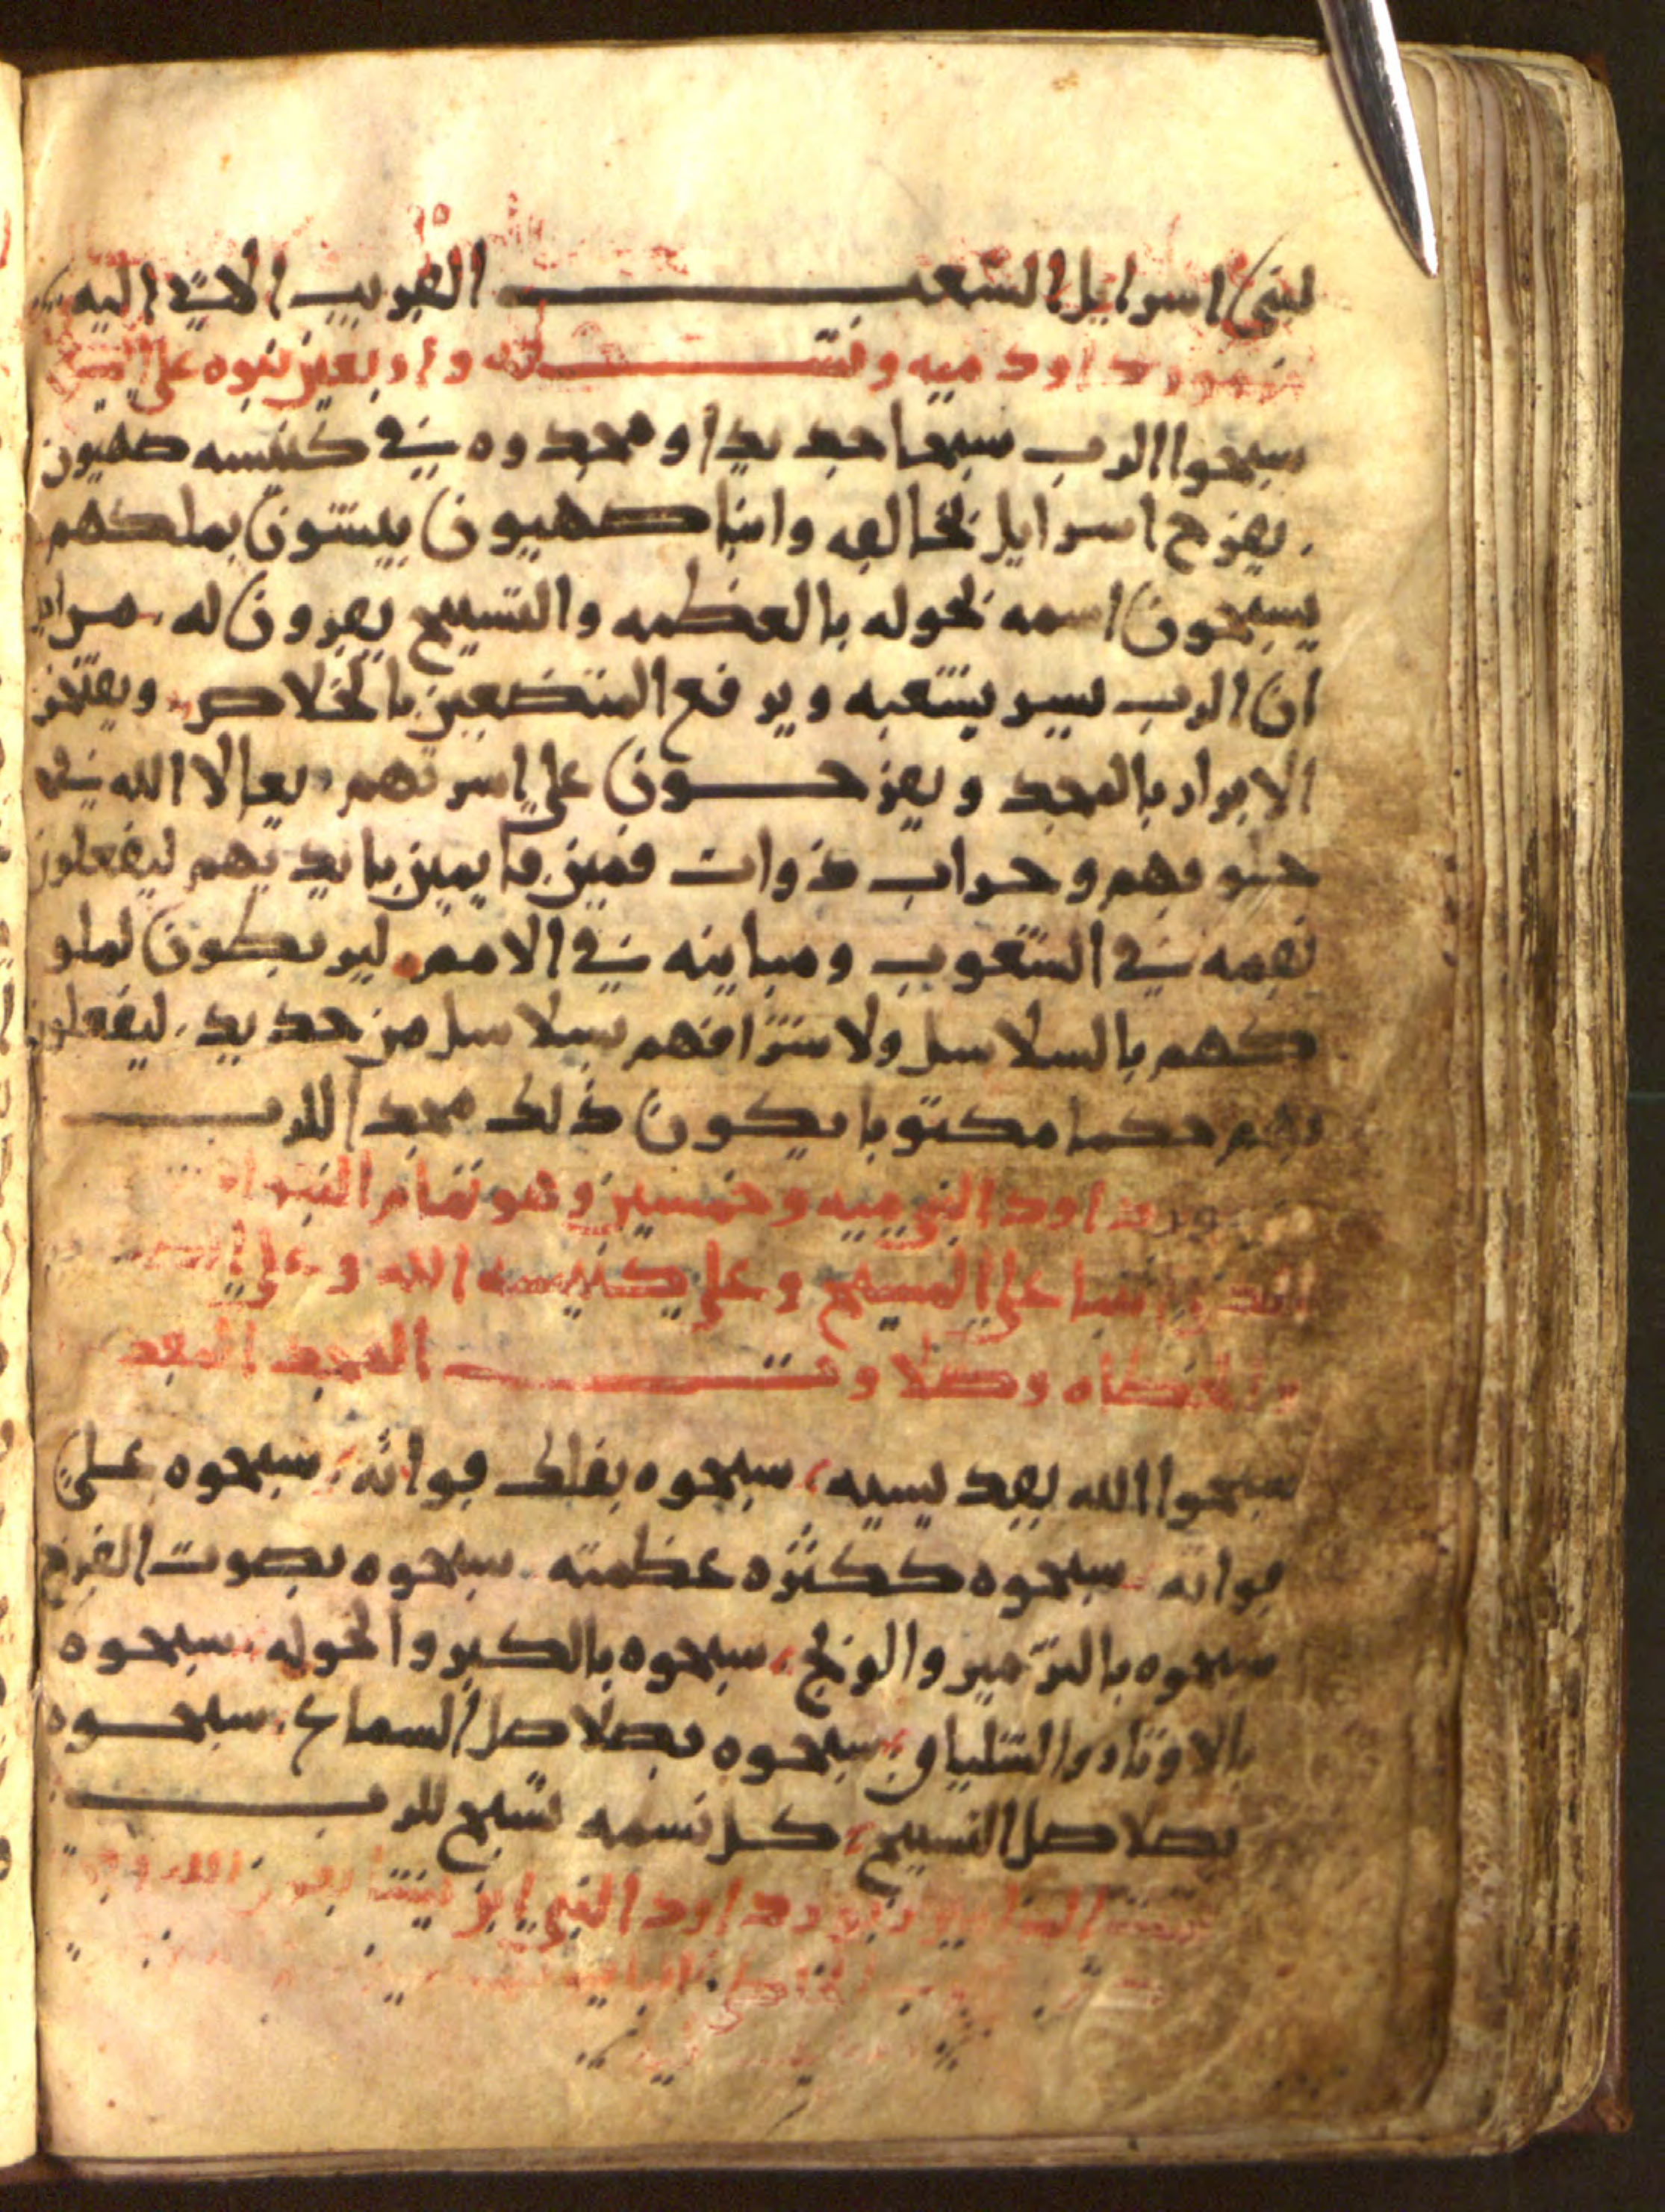 لبني اسرايل الشعب القريب الات اليه
مزمور داود ميه وتسعه واربعين نبوه علي المسيح
سبحوا الرب سبحا جديدا ومجدوه في كنيسه صهيون
يفرح اسرايل بخالقه وابنا صهيون يبتشون بملكهم
يسبحون اسمه بحوله بالعظمه والتسبيح يقرون له
ان الرب يسر بشعبه ويرفع المتضعين بالخلاص ويفتخر
الابرار بالمجد ويفرحون علي اسرتهم تعالا الله في
حلوقهم وحراب ذوات فمين فمين بايديهم ليفعلون
نقمه في الشعوب ومباينه في الامم ليربطون لملو
كهم بالسلاسل ولاشرافهم بسلاسل من حديد ليفعلون
بهم حكما مكتوبا يكون ذلك مجدا للرب
مزمور داود النبي ميه وخمسين وهو تمام
علي المسيح وعلي كنيسه الله وعلي
وصلاوت المجد
سبحوا الله بقديسيه سبحوه بفلك قواته سبحوه علي
قواته سبحوه ككثره عظمته سبحوه بصوت القرن
سبحوه بالمزمير والونج سبحوه بالكبر والحوله سبحوه
بالاوتاد والشلياق سبحوه بصلاصل السماع سبحوه
بصلاصل التسبيح كل نسمه تسبح للرب
داود النبي ابن يشا بعون الله